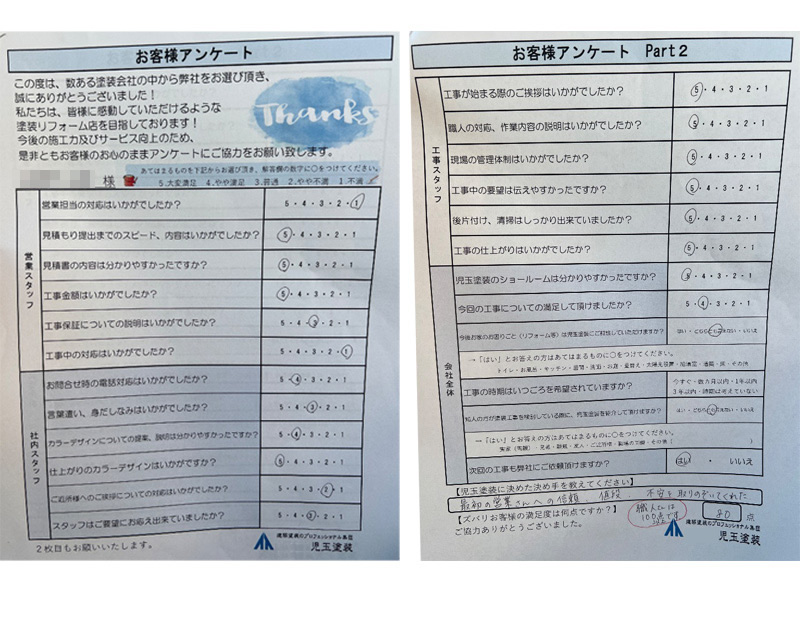 お客様アンケート
この度は、数ある塗装会社の中から弊社をお選び頂き、
誠にありがとうございました！
私たちは、皆様に感動していただけるような
塗装リフォーム店を目指しております！
今後の施工力及びサービス向上のため、
是非ともお客様のお心のままアンケートにご協力をお願い致します。
Thanks
様
あてはまるものを下記からお選び頂き、解答欄の数字に○をつけてください。
5.大変満足 4.やや満足 3.普通 2.やや不満 1.不満
営業スタッフ
営業担当の対応はいかがでしたか？ 5・4・3・2・1
見積もり提出までのスピード、内容はいかがでしたか？ 5・4・3・2・1
見積書の内容は分かりやすかったですか？ 5・4・3・2・1
工事金額はいかがでしたか？ 5・4・3・2・1
工事保証についての説明はいかがでしたか？ 5・4・3・2・1
工事中の対応はいかがでしたか？ 5・4・3・2・1
社内スタッフ
お問合せ時の電話対応はいかがでしたか？ 5・4・3・2・1
言葉遣い、身だしなみはいかがでしたか？ 5・4・3・2・1
カラーデザインについての提案、説明は分かりやすかったですか？ 5・4・3・2・1
仕上がりのカラーデザインはいかがですか？ 5・4・3・2・1
ご近所様へのご挨拶についての対応はいかがでしたか？ 5・4・3・2・1
スタッフはご要望にお応え出来ていましたか？ 5・4・3・2・1
2枚目もお願いいたします。
塗替塗装のプロフェッショナル集団
児玉塗装
お客様アンケート Part2
工事スタッフ
工事が始まる際のご挨拶はいかがでしたか？ 5・4・3・2・1
職人の対応、作業内容の説明はいかがでしたか？ 5・4・3・2・1
現場の管理体制はいかがでしたか？ 5・4・3・2・1
工事中の要望は伝えやすかったですか？ 5・4・3・2・1
後片付け、清掃はしっかり出来ていましたか？ 5・4・3・2・1
工事の仕上がりはいかがでしたか？ 5・4・3・2・1
会社全体
児玉塗装のショールームは分かりやすかったですか？ 5・4・3・2・1
今回の工事についての満足して頂けましたか？ 5・4・3・2・1
今後お家のお困りごと（リフォーム等）は児玉塗装にご相談していただけますか？ はい・どちらでもない・いいえ
→「はい」とお答えの方はあてはまるものに○をつけてください。
工事の時期はいつごろを希望されていますか？ 今すぐ・数カ月以内・1年以内
3年以内・時期は考えていない
知人の方が塗装工事を検討している際に、児玉塗装を紹介して頂けますか？ はい・どちらでもない・いいえ
→「はい」とお答えの方はあてはまるものに○をつけてください。
次回の工事も弊社にご依頼頂けますか？ はい ・ いいえ
【児玉塗装に決めた決め手を教えてください】
最初の営業さんへの信頼 値段 不安を取りのぞいてくれた
【ズバリお客様の満足度は何点ですか？】
職人さんは
100点です
80 点
ご協力ありがとうございました。
塗替塗装のプロフェッショナル集団
児玉塗装